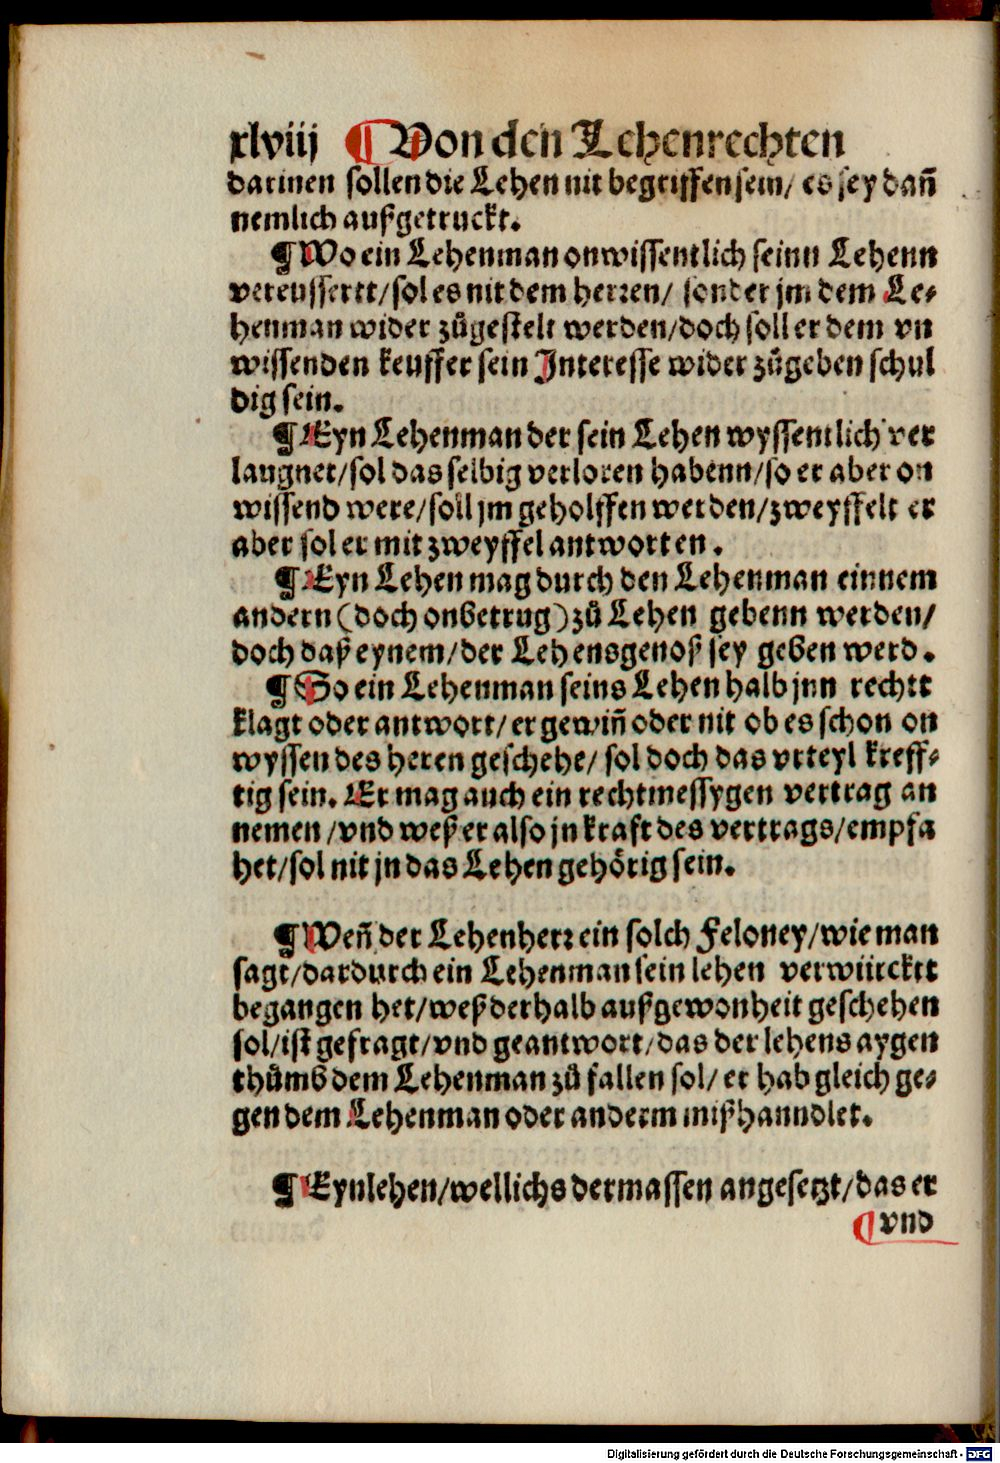 xlviij ¶ Von den Lehenrechten
darinen sollen die Lehen nit begriffen sein/ es sey dañ
nemlich außgetruckt.
¶ Wo ein Lehenman onwissentlich seinn Lehenn
vereusseret/sol es nit dem herren/ sonder jm dem Le⸗
henman wider zůgestelt werden/doch soll er dem vn
wissenden keuffer sein Interesse wider zůgeben schul
dig sein.
¶ Eyn Lehenman der sein Lehen wyssentlich ver
laugnet/sol das selbig verloren habenn/so er aber on
wissend were/soll jm geholffen werden/zweyffelt er
aber sol er mit zweyffel antworten.
¶ Eyn Lehen mag durch den Lehenman einnem
andern (doch onbetrug) zů Lehen gebenn werden/
doch daß eynem/der Lehensgenoß sey geben werd.
¶ So ein Lehenman seins Lehen halb jnn recht
klagt oder antwort/er gewiñ oder nit ob es schon on
wyssen des heren geschehe/ sol doch das vrteyl kreff⸗
tig sein. Er mag auch ein rechtmessygen vertrag an
nemen/vnd weß er also jn kraft des vertrags/empfa
het/sol nit jn das Lehen gehörig sein.
¶ Weñ der Lehenherr ein solch Feloney/wie man
sagt/dardurch ein Lehenman sein lehen verwürckt
begangen het/weß derhalb auß gewonheit geschehen
sol/ist gefragt/vnd geantwort/das der lehens aygen
thůmb dem Lehenman zů fallen sol/ er hab gleich ge⸗
gen dem Lehenman oder anderm mißhanndlet.
¶ Eyn lehen/wellichs dermassen angesetzt/das er
¶ vnd
Digitalisierung gefördert durch die Deutsche Forschungsgemeinschaft - DFG